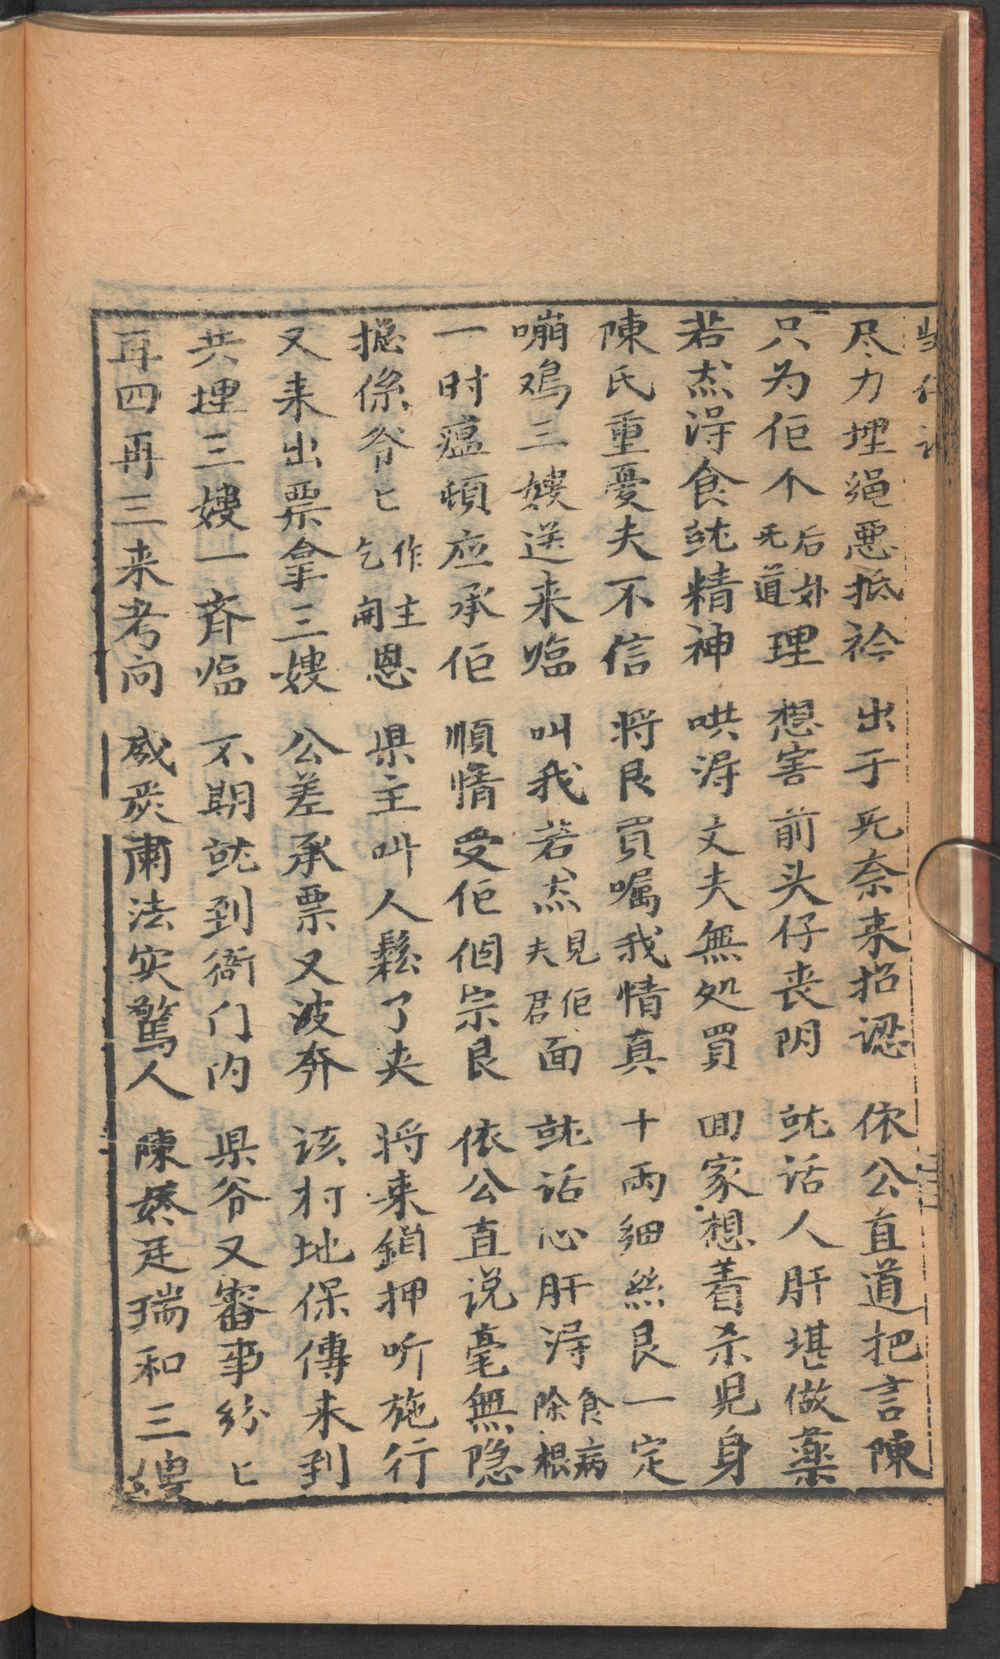 尽力埋绳恶抵衿 出于旡奈来招認 依公直道把言陳
只为佢个后旡外道理 想害前头仔丧阴 就话人肝堪做薬
若然淂食就精神 哄淂丈夫無処買 回家想着杀児身
陳氏重憂夫不信 将艮買嘱我情真 十両細絲艮一定
嘣鸡三嫂送来临 叫我若然見夫佢君面 就话心肝淂食除病根
一时瘟頓应承佢 順情受佢個宗艮 依公直说毫無隐
搃係爷匕作乞主開恩 県主叫人鬆了夹 将来鎖押听施行
又来出票拿三嫂 公差承票又波奔 该村地保傳来到
共埋三嫂一齐临 不期就到衙门内 県爷又審事紛匕
再四再三来考问 威炭肅法实驚人 陳婇廷瑞和三嫂